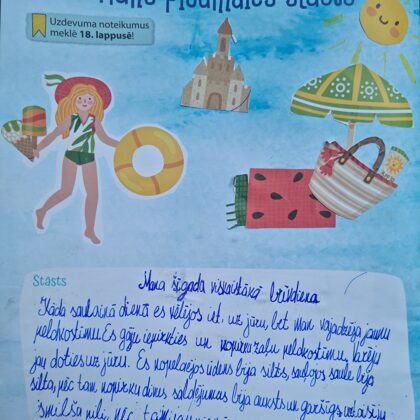 Mans Pludmales stāsts
Uzdevuma noteikumus
meklē 18. lappusē!
Stāsts
Mana šīgada viskaistākā brīvdiena
Kādā saulainā dienā es vēlējos iet uz jūru, bet man vajadzēja jaunu
peldkostīmu. Es gāju iepirkties un nopirku zaļu peldkostīmu, 
jau doties uz jūru. Es ūdens bija silts, saule bija
silta, pēc tam nopirku divus saldējumus bija auksts un garšīgs
smilšu pili, pēc tam